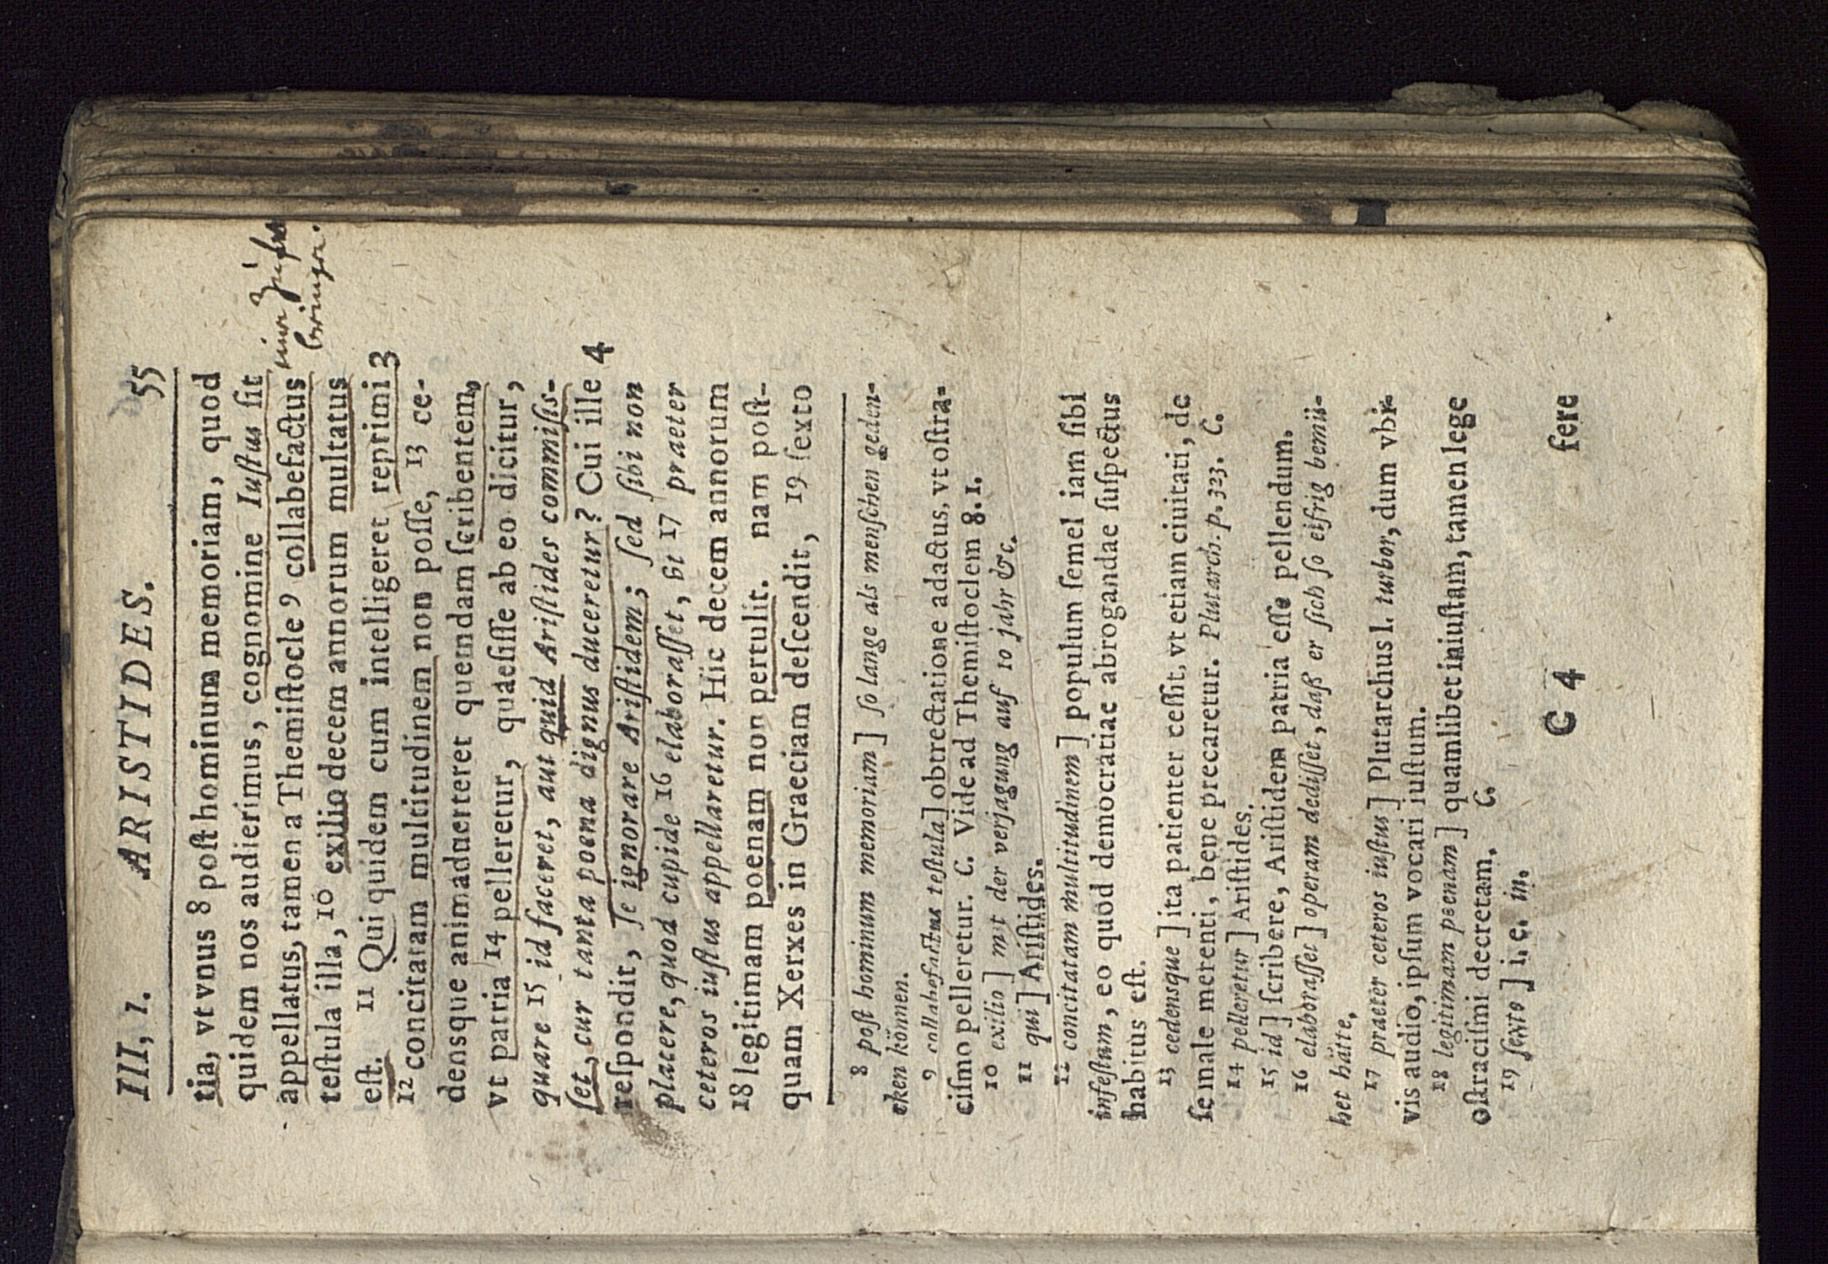 III, 1. ARISTIDES. 55
tia, vt vnus 8 poſt hominum memoriam, quod
quidem nos audierimus, cognomine Iuſtus ſit
appellatus, tamen a Themiſtocle 9 collabefactus
teſtula illa, 10 exilio decem annorum multatus
eſt. 11 Qui quidem cum intelligeret reprimi 3
12 concitatam multitudinem non poſſe, 13 ce-
densque animaduerteret quemdam ſcribentem,
vt patria 14 pelleretur, quaeſiſſe ab eo dicitur,
quare 15 id faceret, aut quid Ariſtides commiſis-
ſet, cur tanta poena dignus duceretur? Cui ille 4
reſpondit, ſe ignorare Ariſtidem; ſed ſibi non
placere, quod cupide 16 elaboraſſet, vt 17 praeter
ceteros iuſtus appellaretur. Hic decem annorum
18 legitimam poenam non pertulit. nam poſt-
quam Xerxes in Graeciam deſcendit, 19 ſexto
bringen.
8 poſt hominum memoriam] ſo lange als menſchen geden-
cken können.
9 collabefactus teſtula] obtrectatione adactus, vt oſtra-
ciſmo pelleretur. C. Vide ad Themiſtoclem 8. 1.
10 exilio] mit der verjagung auf 10 jahr &c.
11 qui] Ariſtides.
12 concitatam multitudinem] populum ſemel iam ſibi
infeſtum, eo quod democratiae abrogandae ſuſpectus
habitus eſt.
13 cedensque] ita patienter ceſſit, vt etiam ciuitati, de
ſe male merenti, bene precaretur. Plutarch. p. 323. C.
14 pelleretur] Ariſtides.
15 id] ſcribere, Ariſtidem patria eſſe pellendum.
16 elaboraſſet] operam dediſſet, daß er ſich ſo eifrig bemü-
het hätte.
17 praeter ceteros iuſtus] Plutarchus l. turbor, dum vbi-
vis audio, ipſum vocari iuſtum.
18 legitimam poenam] quamlibet iniuſtam, tamen lege
oſtraciſmi decretam. C.
19 ſexto] i. e. in.
C 4 fere